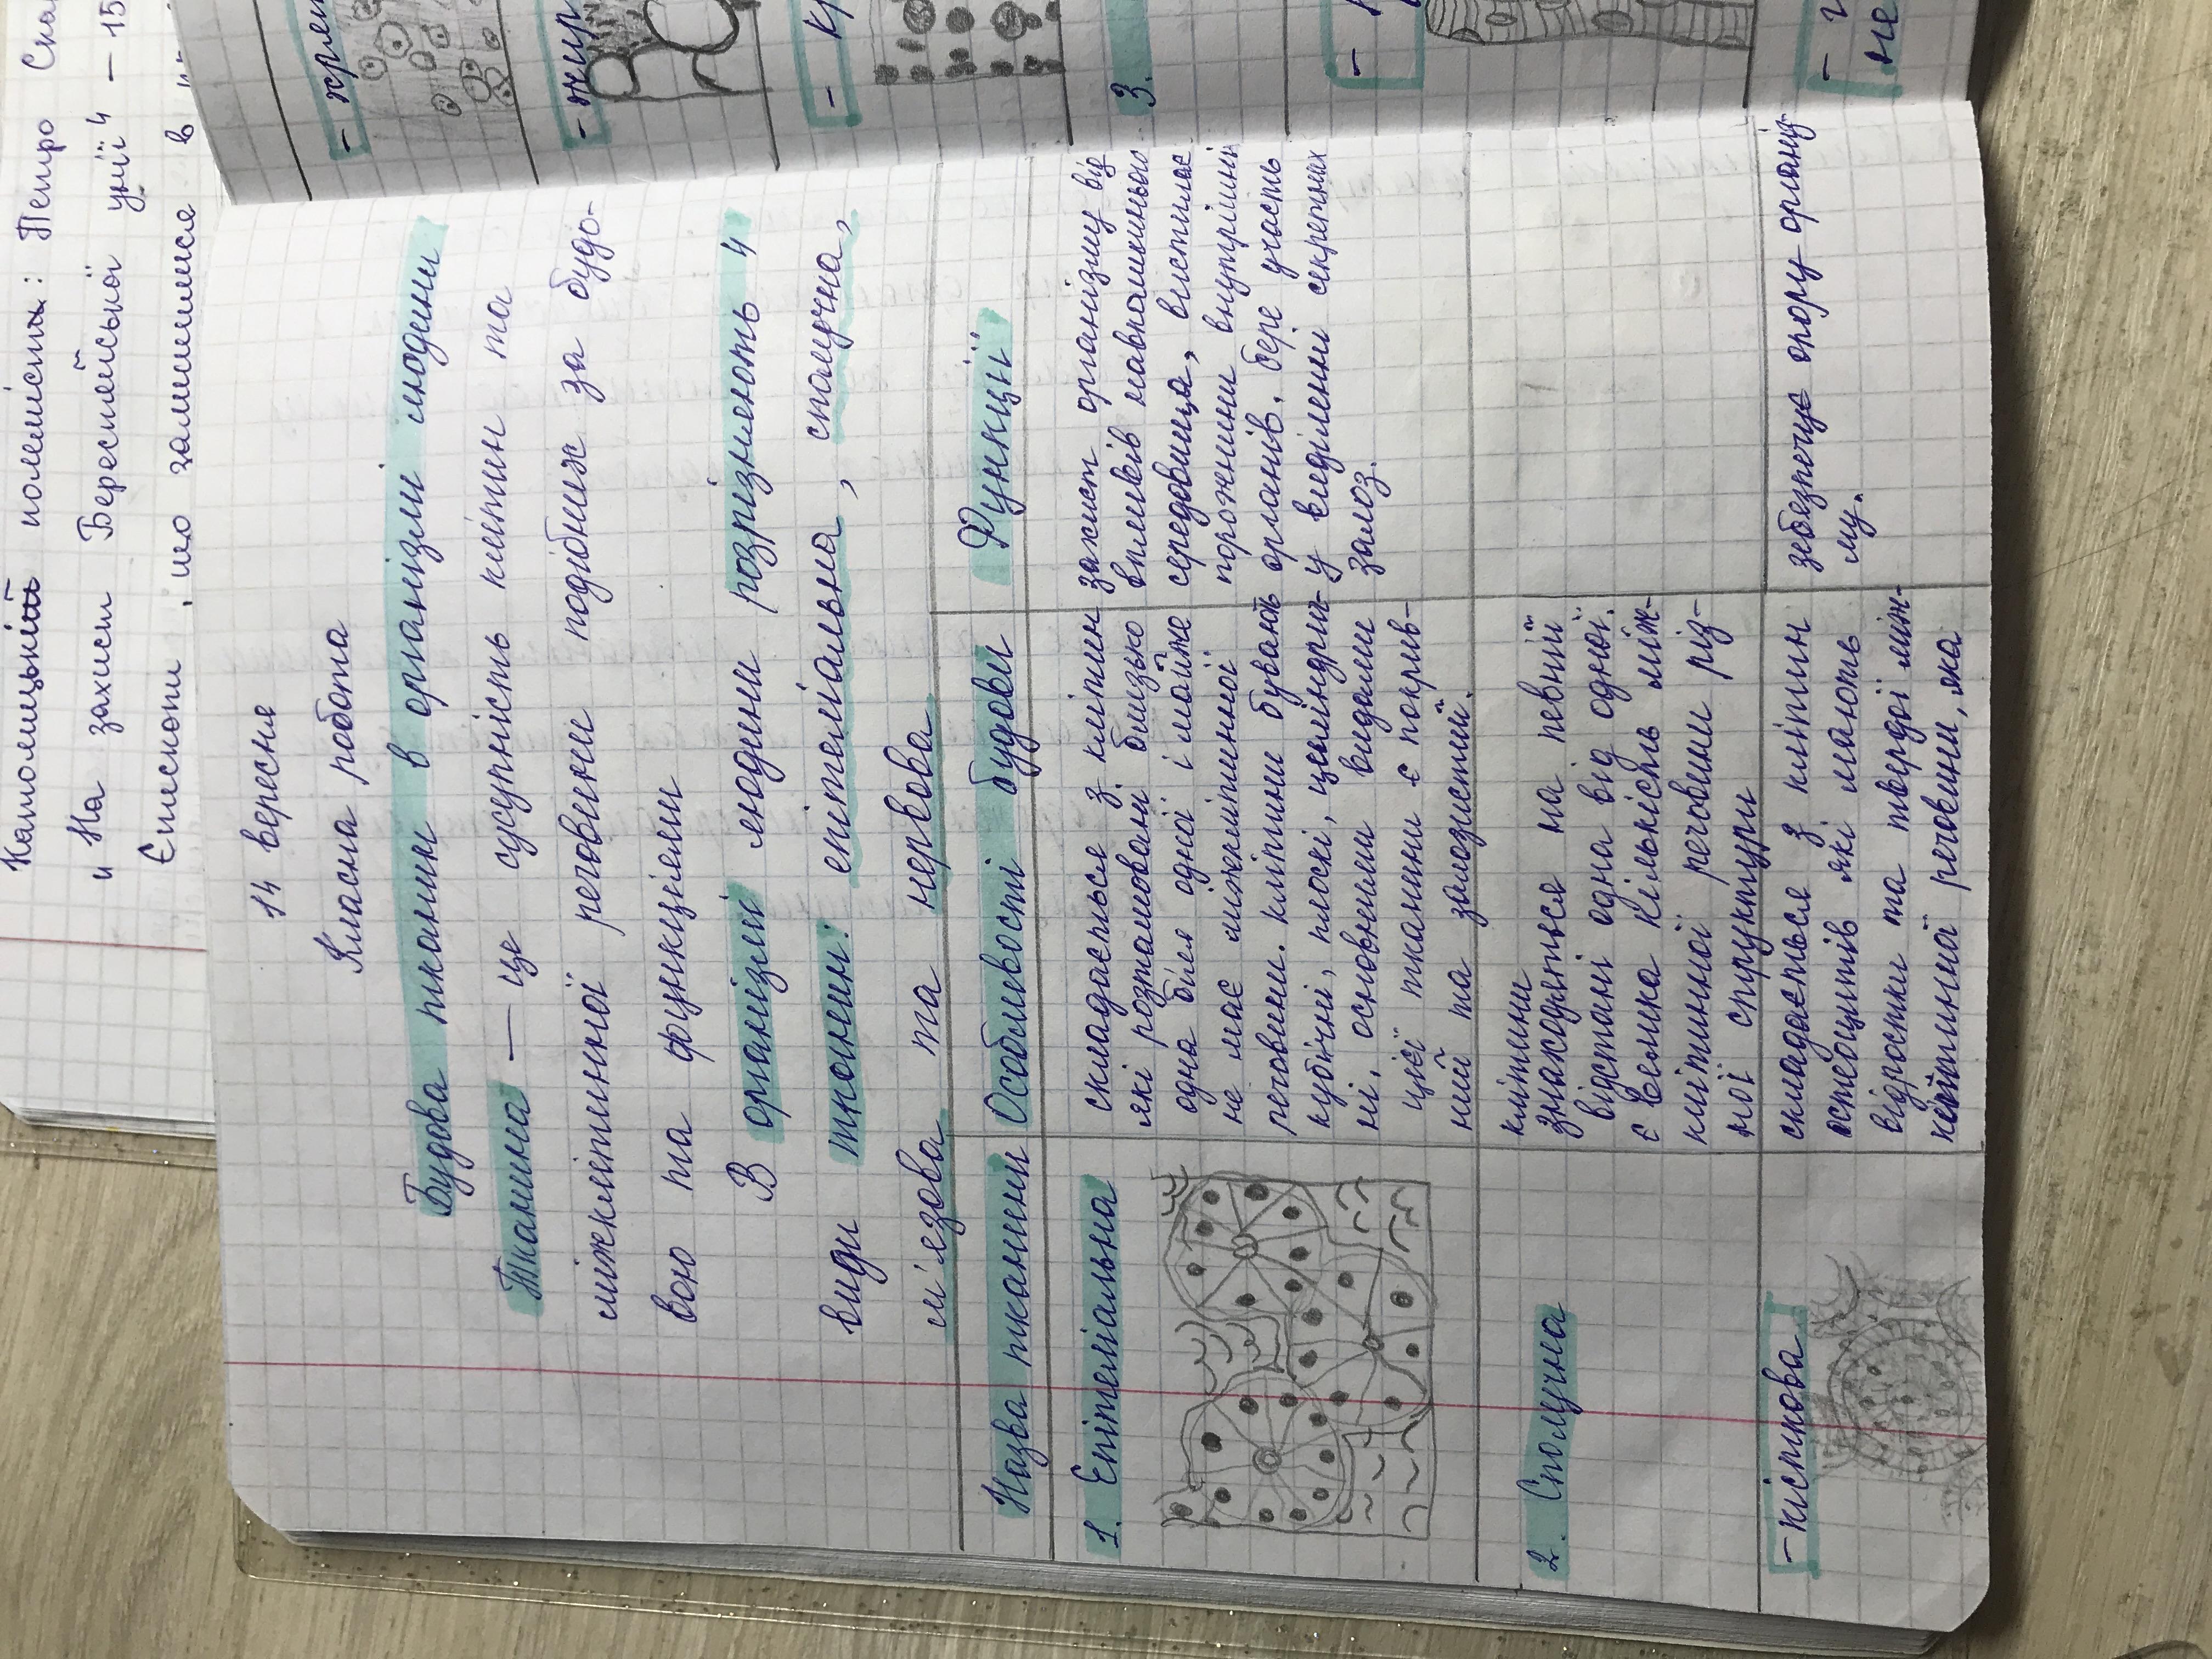 Католицький полемісти: Петро Ска
"На захист Берестейської унії" — 15
Єпископи, що залишилися в
14 вересня
Класна робота
Будова тканин в організмі людини
Тканина — це сусупність клітин та
міжклітинної речовини подібних за будо-
вою та функціями
В організмі людини розрізняють 4
види тканин: епітеліальна, сполучна,
м'язова та нервова
Назва тканини Особливості будови Функції
1. Епітеліальна
складається з клітин
які розташовані близько
одна біля одної і майже
не має міжклітинної
речовини. клітини бувають
кубічні, плоскі, циліндрич-
ні, основними видами
цієї тканини є покрив-
ний та залозистий.
захист організму від
впливів навколишнього
середовища, вистилає
порожнини внутрішніх
органів. бере участь
у виділенні секретних
залоз.
2. Сполучна
клітини
знаходяться на певній
відстані одна від одної.
є велика кількість між-
клітинної речовини різ-
ної структури
- кісткова
складається з клітин
остеоцитів які мають
відростки та твердої між-
клітинної речовини, яка
зебезпечує опору організ-
му.
- жир
- кр
3.